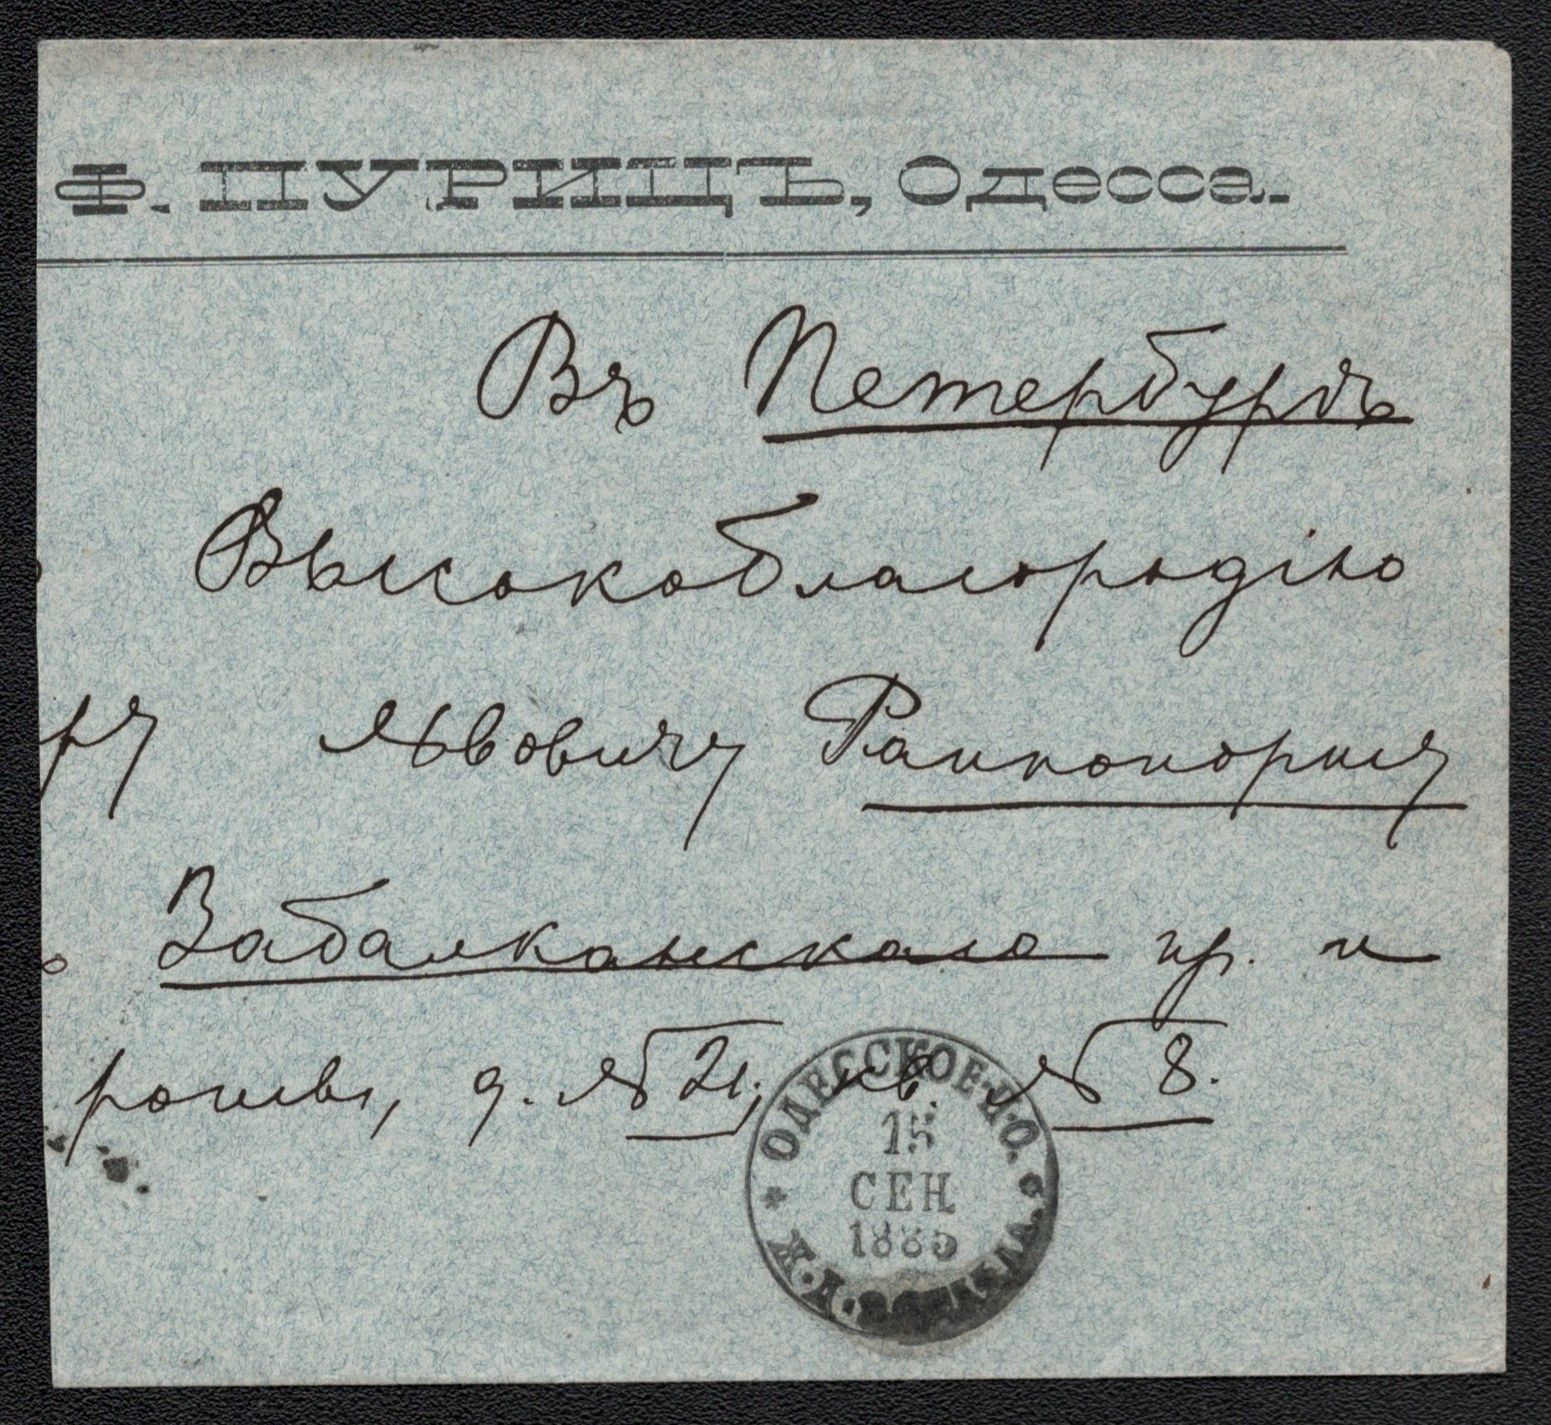 Ф. ПУРИЦЪ, Одесса.
Въ Петербургъ
Высокоблагородію
ру Львовичу Раппопорту
Забалканскаго пр. и
роты, д. № 21, кв. № 8.
ОДЕССКОЕ П.О.
15
СЕН
1885